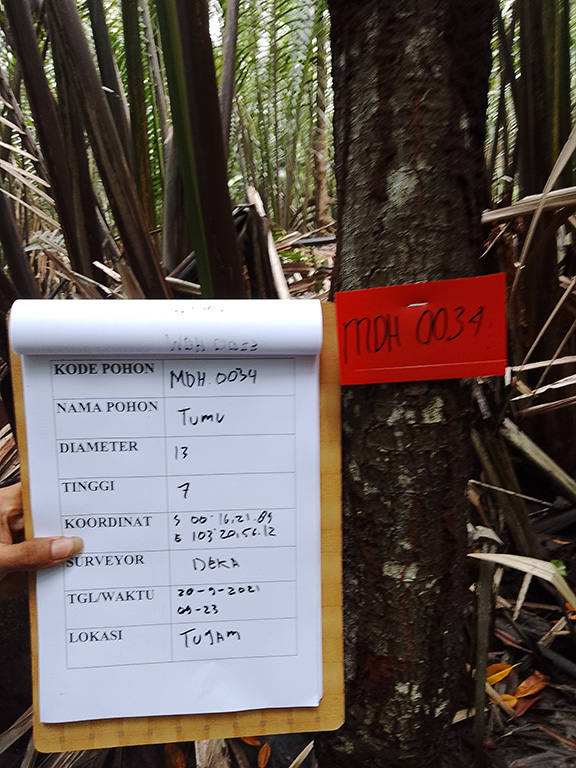 KODE POHON MDH.0034
NAMA POHON Tumu
DIAMETER 13
TINGGI 7
KOORDINAT S 00°16,21.89
E 103°20,56.12
SURVEYOR DEKA
TGL/WAKTU 20-9-2021
09-23
LOKASI TUJAM
MDH 0034.